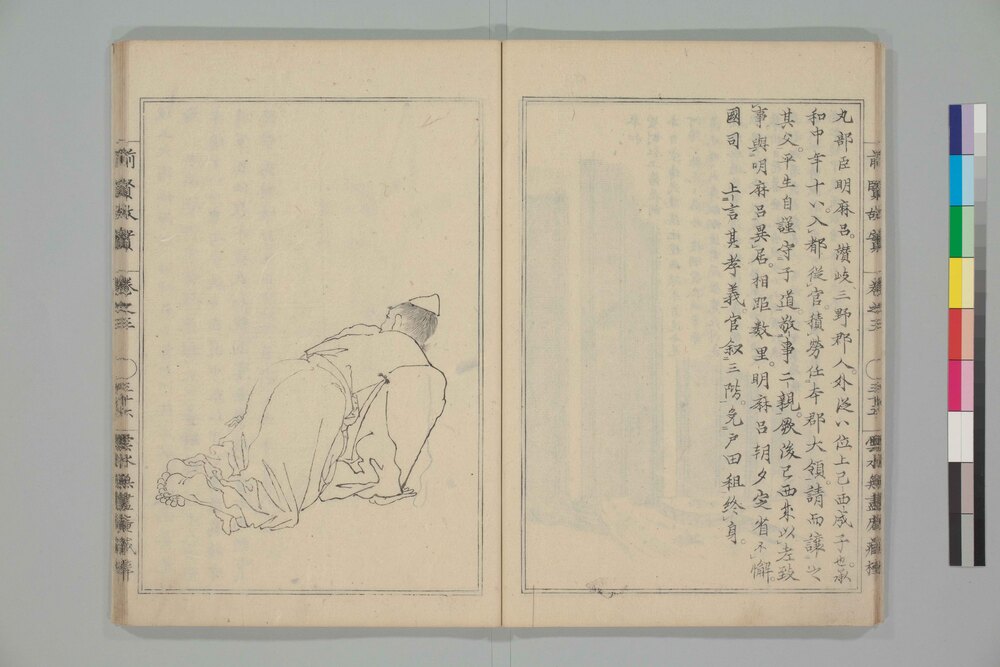 丸部臣明麻呂。讃岐三野郡人。外從八位上己西成子也。承
和中年十八。入都從官。積勞任本郡大領。請而讓之
其父。平生自謹守于道。敬事二親。厥後己西成以老致
事。與明麻呂異居。相距数里。明麻呂朝夕定省不懈。
國司 上言其孝義。官叙三階。免戸田租終身。
前賢故實
卷之三
○三十五
前賢故實
卷之三
○三十六